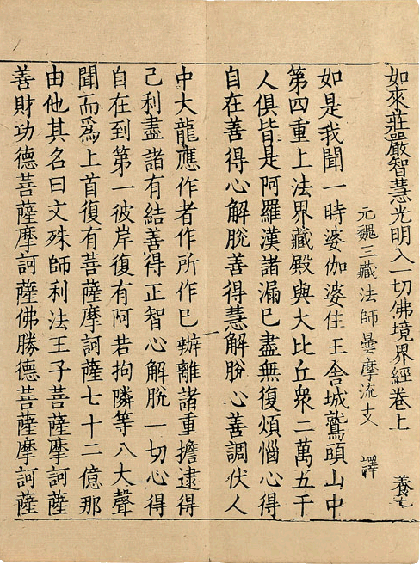 如來莊嚴智慧光明入一切佛境界經卷上
元魏三藏法師曇摩流支 譯
如是我聞一時婆伽婆住王舍城鷲頭山中
第四重上法界藏殿與大比丘衆二萬五千
人俱皆是阿羅漢諸漏已盡無復煩惱心得
自在善得心解脫善得慧解脫心善調伏人
中大龍應作者作所作已辦離諸重擔逮得
己利盡諸有結善得正智心解脫一切心得
自在到第一彼岸復有阿若拘隣等八大聲
聞而爲上首復有菩薩摩訶薩七十二億那
由他其名曰文殊師利法王子菩薩摩訶薩
善財功德菩薩摩訶薩佛勝德菩薩摩訶薩